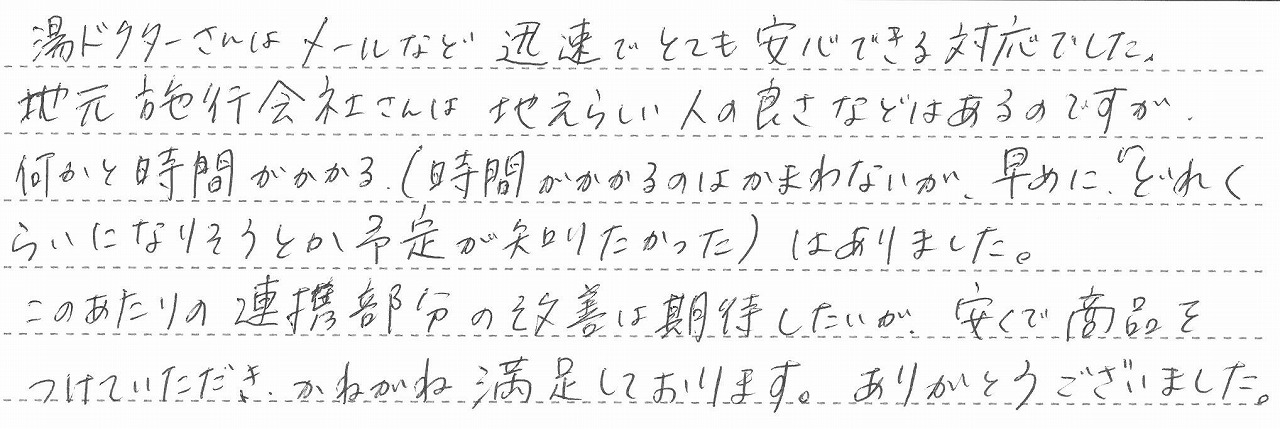 湯ドクターさんはメールなど迅速でとても安心できる対応でした、
地元施行会社さんは地元らしい人の良さなどはあるのですが、
何かと時間がかかる、(時間がかかるのはかまわないが、早めに、どれく
らいになりそうとか予定が知りたかった)はありました。
このあたりの連携部分の改善は期待したいが、安くで商品を
つけていただき、かねがね満足しております。ありがとうございました。